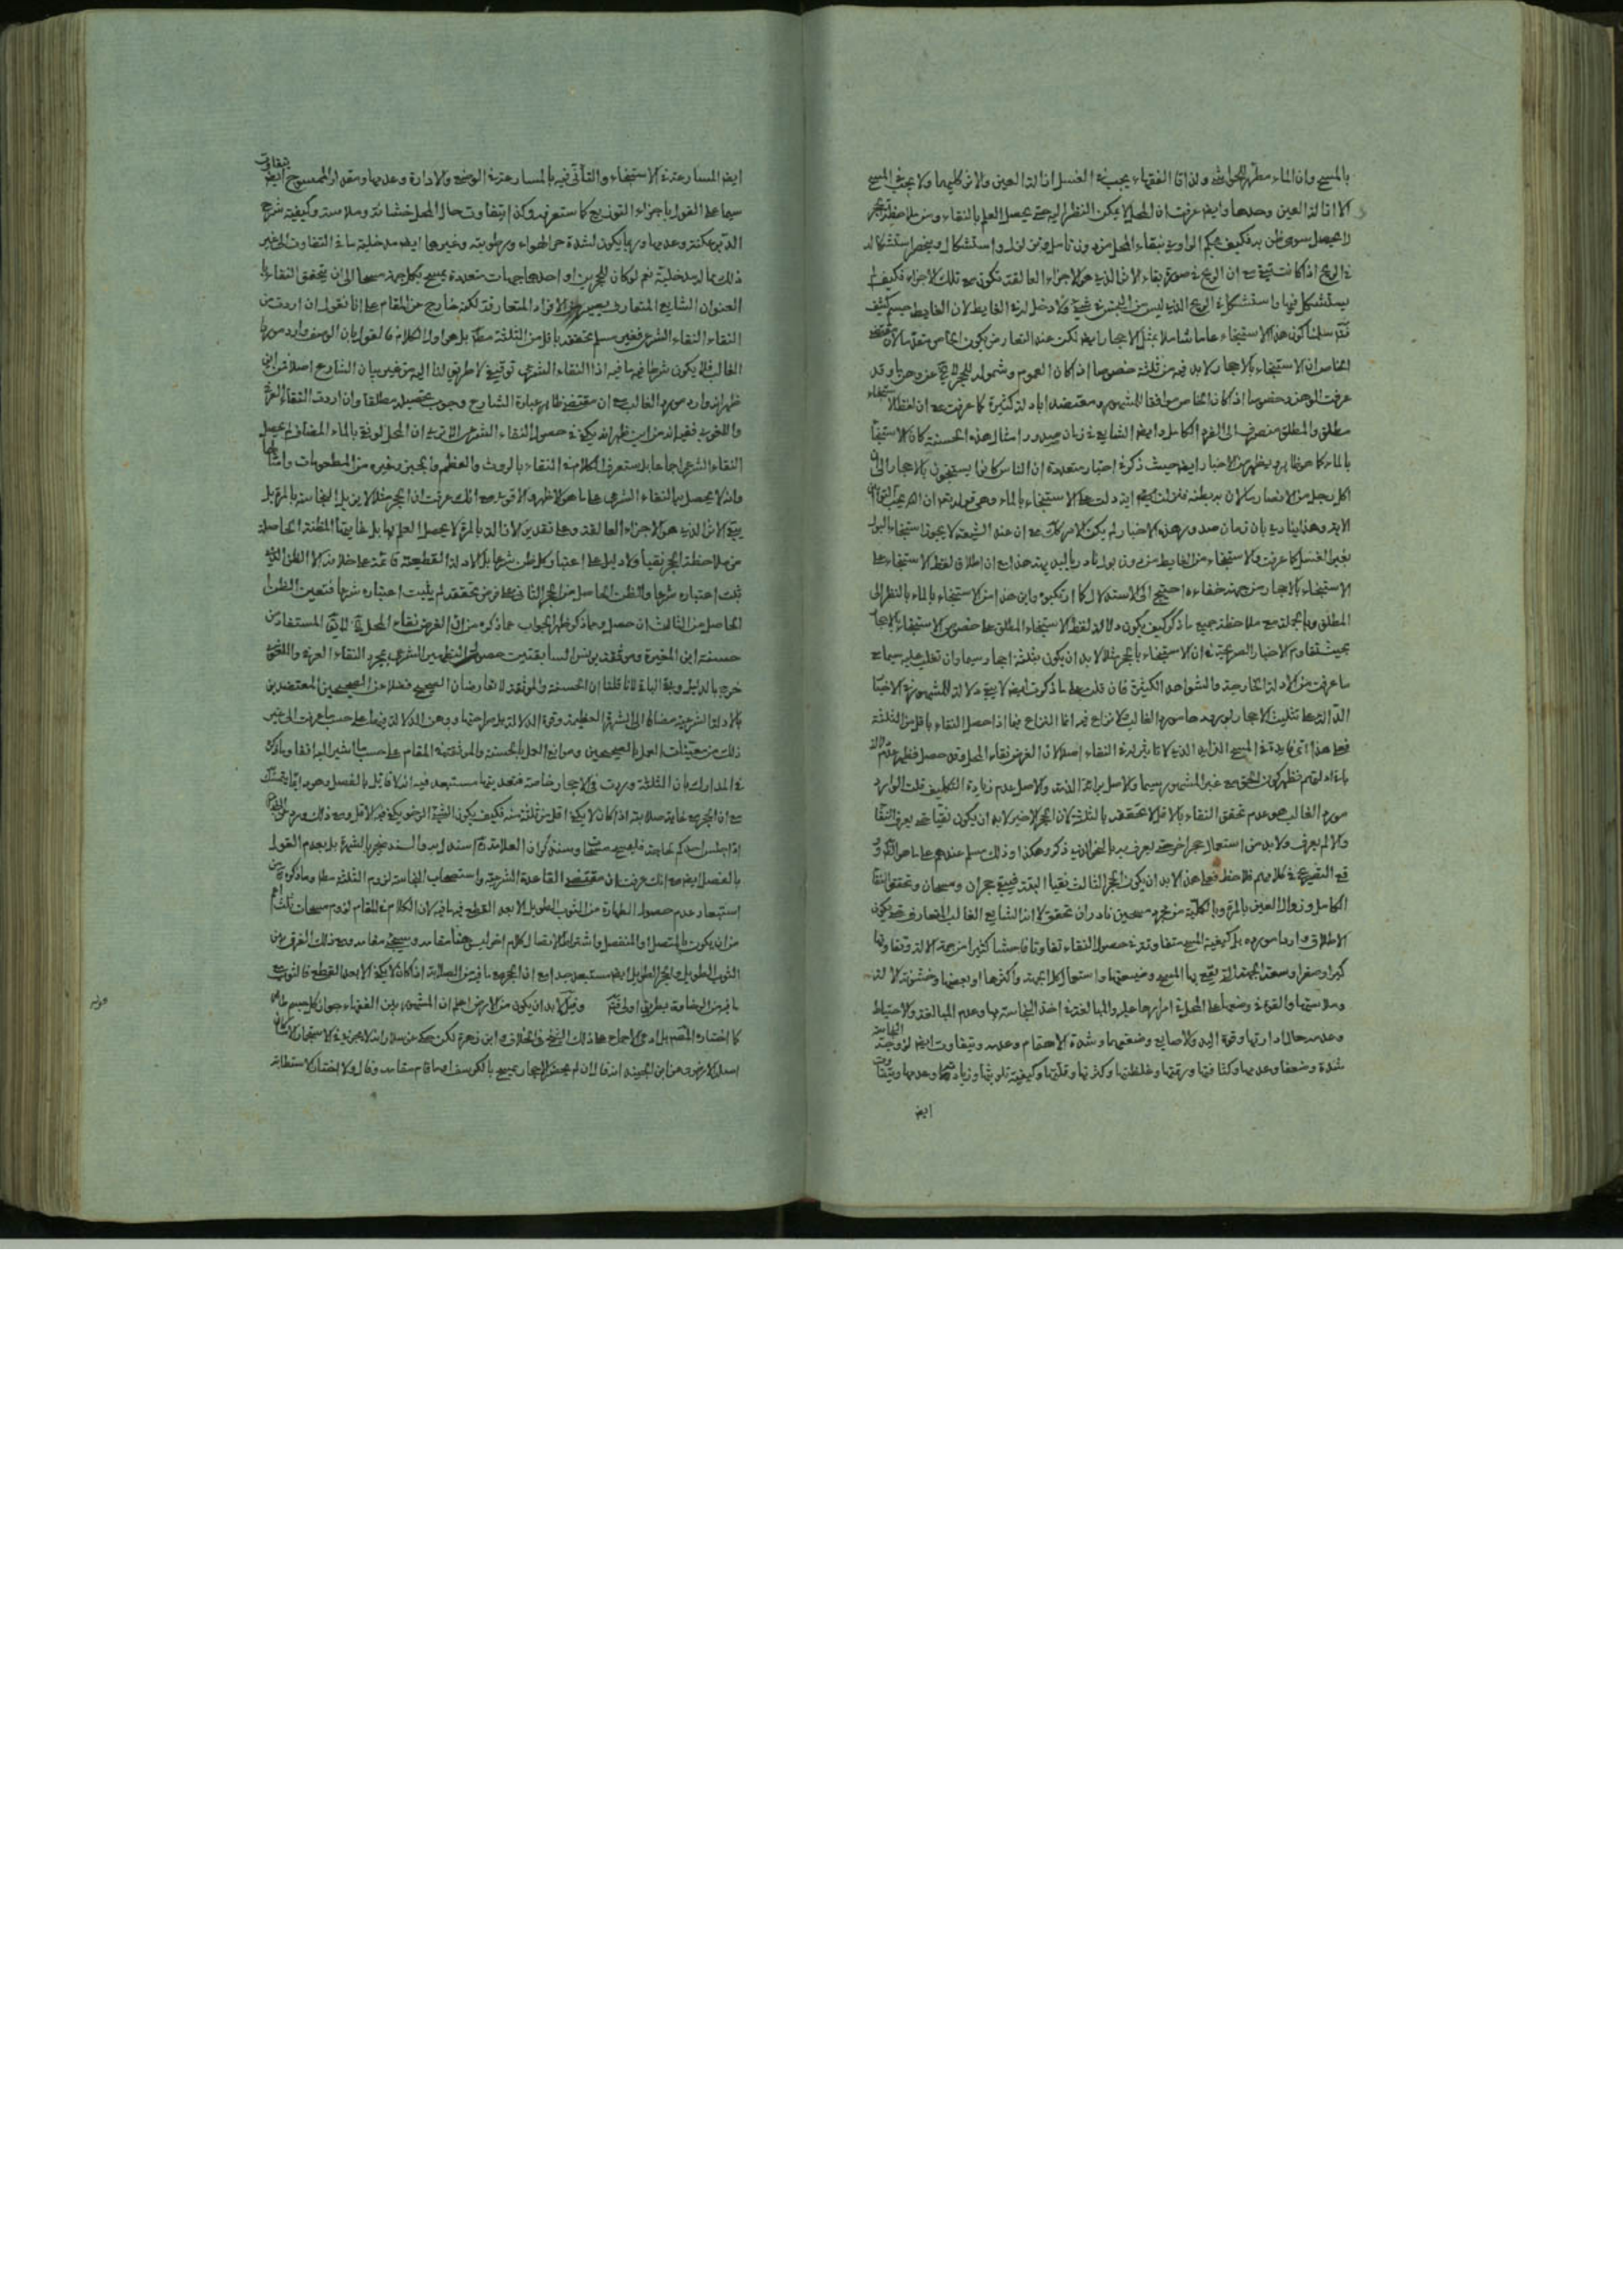 بالمسح وان الماء مطهر للحواشي ولذا قال الفقهاء يجب في الغسل ازالة العين والاثر كليهما ولا يجب في المسح
الا ازالة العين وحدها وايض عرفت ان المحل لا يمكن النظر اليه حتى يحصل العلم بالنقاء ومن ملاحظة الحجر
لا يحصل سوى ظن به فكيف يحكم الراوي بنقاء المحل من دون تأمل واستشكال وينحصر استشكاله
في الريح اذا كانت مع ان الريح في صورة بقاء الاثر الذي هو الاجزاء العالقة تكون مع تلك الاجزاء فكيف
يستشكل فيها واستشكل في الريح الذي ليس من النجس في شيء ولا دخل له في الغايط لان الغايط جسم كثيف
سلمنا كون هذا الاستنجاء عاما شاملا لمثل الاحجار ايض لكن عند التعارض يكون الخاص مقدما لان
الخاص ان الاستنجاء بالاحجار لا بد فيه من ثلثة خصوصا اذا كان العموم وشموله للحجر لا يخ عن وهن وقد
عرفت الوهن وخصوصا اذا كان الخاص موافقا للمشهور ومعتضدا بادلة كثيرة كما عرفت مع ان لفظ الاستنجاء
مطلق والمطلق منصرف الى الفرد الكامل وايض الشايع في زمان صدور امثال هذه الحسنة كان الاستنجاء
بالماء كما هو ظاهر ويظهر من الاخبار ايض حيث ذكر في اخبار متعددة ان الناس كانوا يستنجون بالاحجار الى ان
اكل رجل من الانصار فلان بطنه فنزلت فيه اية دلت على الاستنجاء بالماء وهي قوله تع ان الله يحب التوابين
الاية وهذا ينادي بان زمان صدور هذه الاخبار لم يكن الامر كك مع ان عند الشيعة لا يجوز استنجاء البول
بغير الغسل كما عرفت والاستنجاء من الغايط من دون بول نادر بالبديهة هذا مع ان اطلاق لفظ الاستنجاء على
الاستنجاء بالاحجار من جهة خفاءه احتيج الى الاستدلال كما ارتكبوه واين هذا من الاستنجاء بالماء بالنظر الى
المطلق وبالجملة مع ملاحظة جميع ما ذكر كيف يكون دلالة لفظ الاستنجاء المطلق على خصوص الاستنجاء بالاحجار
بحيث تقاوم الاخبار الصريحة في ان الاستنجاء بالحجر مثلا لا بد ان يكون بثلثة احجار وسيما وان تغلب عليه سيما مع
ما عرفت من الادلة الخارجية والشواهد الكثيرة فان قلت على ما ذكرت ايض لا يبقى دلالة للمشهور في الاخبار
الدالة على تثليث الاحجار لورودها مورد الغالب لا نزاع فيه انما النزاع فيما اذا حصل النقاء باقل من الثلثة
فعلى هذا اي فايدة في المسح الزايد الذي لا تاثير له في النقاء اصلا لان الغرض نقاء المحل وقد حصل فظهر عدم دلالة
ما دلهم فظهر كون الحق مع غير المشهور سيما والاصل براءة الذمة والاصل عدم زيادة التكليف قلت الوارد
مورد الغالب هو عدم تحقق النقاء بالاقل لا تحققه بالثلثة لان الحجر الاخير لا بد ان يكون نقيا حتى يعرف النقاء
والا لم يعرف ولا بد من استعمال حجر اخر حتى يعرف به بالنحو الذي ذكر وهكذا وذلك مسلم عندهم على ما هو الظ وقد
وقع التصريح في كلامهم فلاحظ فعلى هذا لا بد ان يكون الحجر الثالث نقيا البتة فيبقى حجران ومسحان وتحقق النقاء
الكامل وزوال العين بالمرة وبالكلية من مجرد مسحين نادر ان تحقق لا انه الشايع الغالب المتعارف حتى يكون
الاطلاق واردا مورده بل كيفية المسح متفاوتة في حصول النقاء تفاوتا فاحشا كثيرا من جهة الالة وتفاوتها
كبرا وصغرا وسعة الجهة التي يقع بها المسح وضيقها واستعمال كل الجهة واكثرها او بعضها وخشونة الالة
وملاستها والقوة في وضعها على المحل في امرارها عليه والمبالغة في اخذ النجاسة بها وعدم المبالغة والاحتياط
وعدمه حال ادارتها وقوة اليد والاصابع وضعفهما وشدة الاهتمام وعدمه وتتفاوت ايض لزوجة النجاسة
شدة وضعفا وعدمها وكثافتها ورقتها وغلظتها وكثرتها وقلتها وكيفية تلويثها وزيادتها وعدمها ويتفاوت
ايض
ايض المسارعة في الاستنجاء والتأني فيه بالمسارعة في الوضع والادارة وعدمها ومقدار الممسوح ايض يتفاوت
سيما على القول باجزاء التوزيع كما ستعرف وكذا يتفاوت حال المحل خشانة وملاسة وكيفية شرج
الدبر عكنة وعدمها وربما يكون لشدة حر الهواء ورطوبته وغيرها ايض مدخلية ما في التفاوت الى غير
ذلك مما له مدخلية نعم لو كان للحجرين او احدهما جهات متعددة يمسح بكل جهة مسحا الى ان يتحقق النقاء
العنوان الشايع المتعارف يصير من الافراد المتعارفة لكنه خارج عن المقام على انا نقول ان اردت من
النقاء النقاء الشرعي فغير مسلم تحققه باقل من الثلثة مط بل هو اول الكلام فالقول بان الوصف وارد مورد
الغالب فلا يكون شرطا فيه ما فيه اذ النقاء الشرعي توقيفي لا طريق لنا اليه من غير بيان الشارع اصلا فمن اين
ظهر انه وارد مورد الغالب مع ان مقتضى ظاهر عبارة الشارع وجوب تحصيله مطلقا وان اردت النقاء العرفي
واللغوي ففيه انه من اين ظهر انه يكفي في حصول النقاء الشرعي الا ترى ان المحل لو نقي بالماء المضاف لم يحصل
النقاء الشرعي اجماعا بل ستعرف الكلام في النقاء بالروث والعظم والعجين وغيره من المطعومات وامثالها
وانه لا يحصل بها النقاء الشرعي على ما هو الاظهر والاقوى مع انك عرفت ان الحجر مثلا لا يزيل النجاسة بالمرة بل
يبقى الاثر الذي هو الاجزاء العالقة وعلى تقدير الازالة بالمرة لا يحصل العلم بها بل غايتها المظنة الحاصلة
من ملاحظة الحجر نقيا ولا دليل على اعتبار كل ظن شرعا بل الادلة القطعية قائمة على خلافه الا الظن الذي
ثبت اعتباره شرعا والظن الحاصل من الحجر الثاني على فرض تحققه لم يثبت اعتباره شرعا فتعين الظن
الحاصل من الثالث ان حصل ومما ذكر ظهر الجواب عما ذكره من ان الغرض نقاء المحل لا يق المستفاد من
حسنة ابن المغيرة وموثقة يونس السابقتين حصول التطهير الشرعي بمجرد النقاء العرفي واللغوي
خرج بالدليل وبقي الباقي لانا قلنا ان الحسنة والموثقة لا تعارضان الصحيح فضلا عن الصحيحين المعتضدين
بالادلة الشرعية مضافا الى الشهرة العظيمة وقوة الدلالة بل صراحتها ووهن الدلالة فيهما على حسب ما عرفت الى غير
ذلك من معينات العمل بالصحيحين وموانع العمل بالحسنة والموثقة في المقام على حسب ما اشير اليه انفا وما ذكره
في المدارك بان الثلثة وردت في الاحجار خاصة فتعديتها مستبعد فيه انه لا قائل بالفصل وهو ايض يتمسك
مع ان الحجر مع غاية صلابته اذا كان لا يكفي اقل من ثلثة منه فكيف يكون الشيء الرخو يكفي فيه الاقل ومع ذلك ورد
اذا جلس احدكم لحاجته فليمسح مسحات وسنذكر ان العلامة استدل به والسند منجبر بالشهرة بل بعدم القول
بالفصل ايض مع انك عرفت ان مقتضى القاعدة الشرعية واستصحاب النجاسة لزوم الثلثة مط وما ذكره من
استبعاد عدم حصول الطهارة من الثوب الطويل الا بعد القطع فيه ما فيه لان الكلام في المقام لزوم مسحات ثلث اعم
من ان يكون بالمتصل او المنفصل واشتراط الانفصال كلام اخر ليس هنا مقامه وسيجيء مقامه ومع ذلك الفرق بين
الثوب الطويل والحجر الطويل ايض مستبعد جدا مع ان الحجر مع ما فيه من الصلابة اذا كان لا يكفي الا بعد القطع فالثوب مع
ما فيه من الرخاوة بطريق اولى قوله وقيل لا بد ان يكون من الارض اعلم ان المشهور بين الفقهاء جواز كل جسم طاهر
كما اختاره المصنف بل ادعى الاجماع على ذلك الشيخ في الخلاف وابن زهرة لكن حكي عن سلار انه لا يجزي في الاستجمار الا ما كان
اصله الارض وعن ابن الجنيد انه قال ان لم يحضر الاحجار يمسح بالكرسف او ما قام مقامه وقال ولا اختار الاستطابة